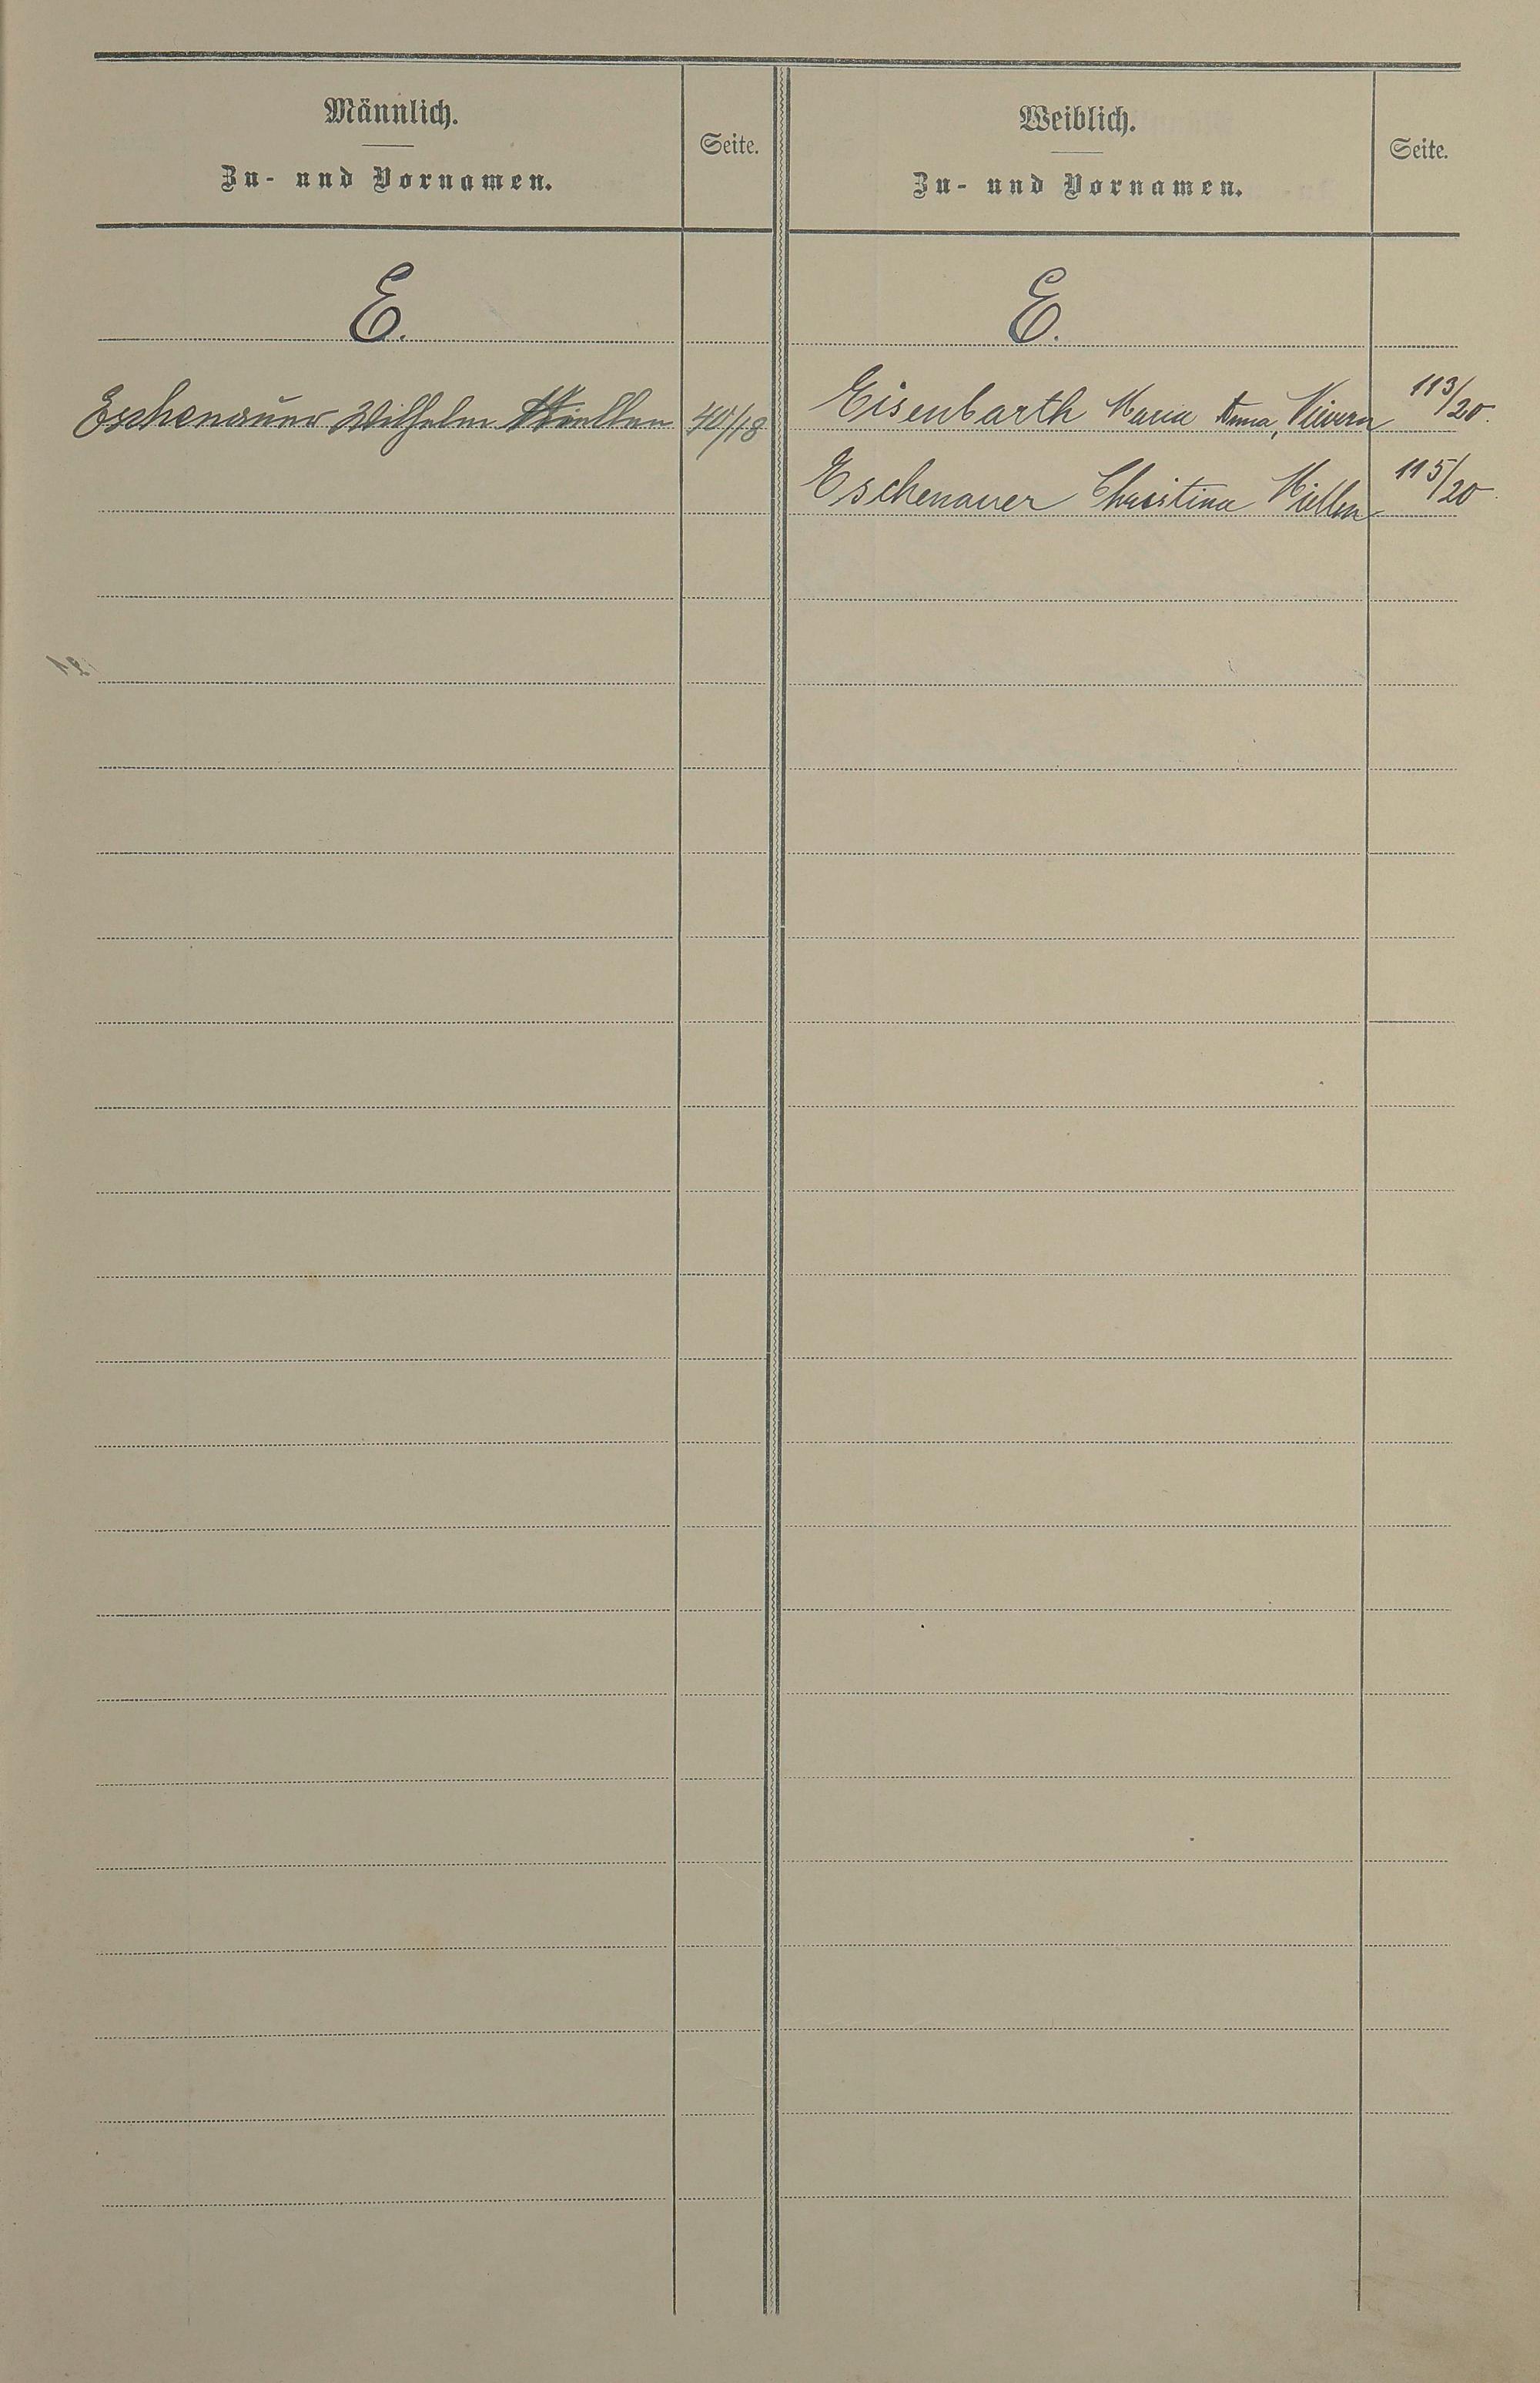 Männlich.
Zu- und Vornamen.
Seite.
E.
Eschenauer Wilhelm Miellen 40/18
Weiblich.
Zu- und Vornamen.
Seite.
E.
Eisenbarth Maria Anna, Nievern 113/20.
Eschenauer Christina Miellen 115/20